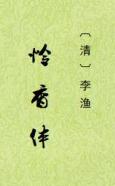 〔清〕李渔
怜香伴